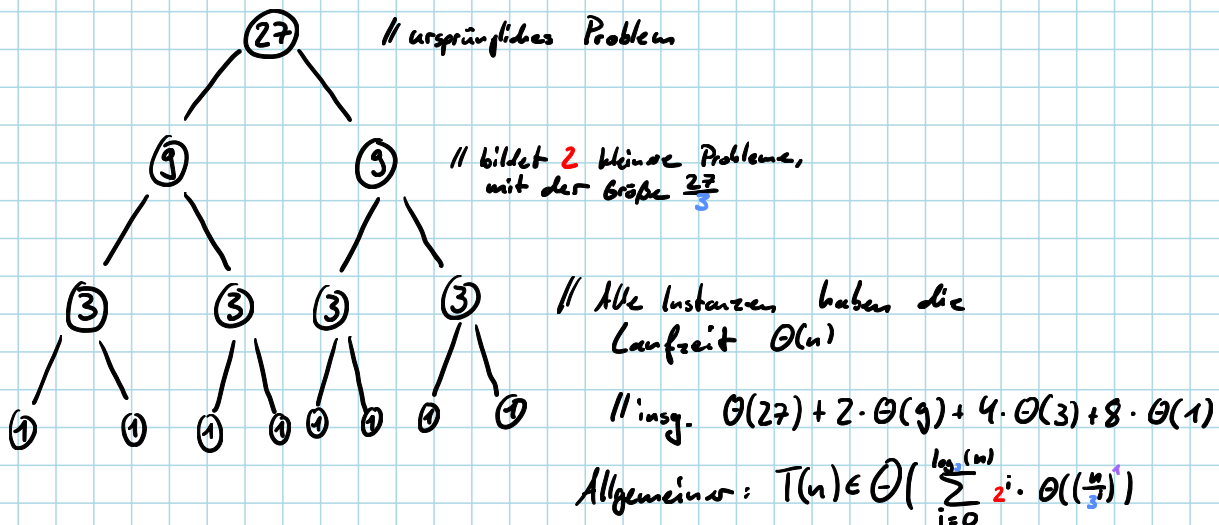 27
// ursprüngliches Problem
9 9
// bildet 2 kleinere Probleme,
mit der Größe 27/3
3 3 3 3
// Alle Instanzen haben die
Laufzeit Θ(n)
1 1 1 1 1 1 1 1
// insg. Θ(27) + 2 · Θ(9) + 4 · Θ(3) + 8 · Θ(1)
Allgemeiner: T(n) ∈ Θ( ∑_{i=0}^{log₃(n)} 2^i · Θ((n/3^i)^1)